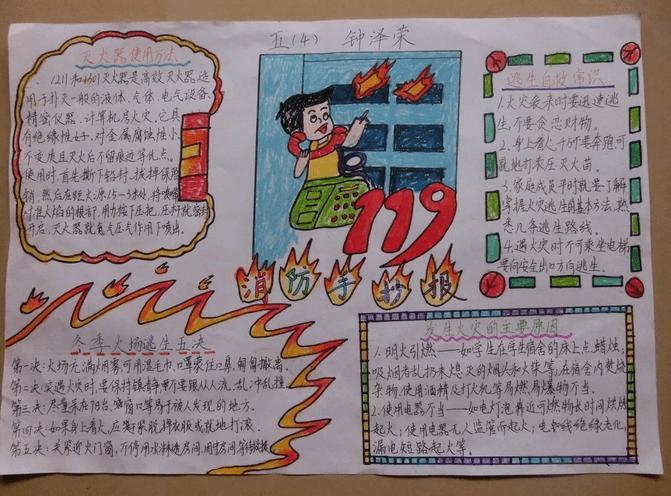 五(4) 钟泽荣
灭火器使用方法
1211和灭火器是高效灭火器,适
用于扑灭一般的液体、气体、电气设备、
精密仪器、计算机房火灾。它具
有绝缘性好、对金属腐蚀性小、
不变质且灭火后不留痕迹等优点。
使用时,首先撕下铅封,拔掉保险
销,然后在距火源1.5—3米处,将喷嘴
对准火焰的根部,用力按下压把,压杆就
开启,灭火器就氮气压气作用下喷出。
119
消防手抄报
逃生自救常识
1.火灾袭来时要迅速逃
生,不要贪恋财物。
2.身上着火,千万不要奔跑,可
就地打滚压灭火苗。
3.家庭成员平时就要了解
掌握火灾逃生的基本方法,熟
悉几条逃生路线。
4.遇火灾时不可乘坐电梯,
要向安全出口方向逃生。
冬季火场逃生五决
第一决:火场充满烟雾,可用湿毛巾、口罩 口鼻,匍匐撤离。
第二决:突遇火灾时,要保持镇静,不要跟从人流、乱冲乱撞。
第三决:尽量呆在阳台、窗口等易于被人发现的地方。
第四决:如果身上着火,应 脱掉衣服或就地打滚。
第五决:关紧迎火门窗, 房间 等待救援。
发生火灾的主要原因
1.明火引燃——如学生在学生宿舍的床上点蜡烛;
吸烟者乱扔未熄灭的烟火和火柴等,在宿舍内焚烧
杂物,使用酒精及打火机等易燃易爆物不当。
2.使用电器不当——如电灯泡靠近可燃物长时间烘烤
起火;使用电器无人监管而起火;电线绝缘老化,
漏电短路起火等。